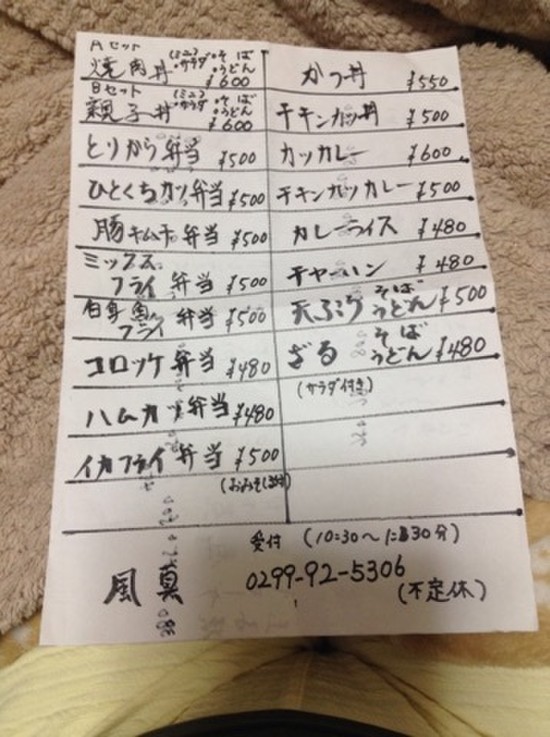 Aセット
焼肉丼 (ミニ)・サラダ ・そば ・うどん ¥600
Bセット
親子丼 (ミニ)・サラダ ・そば ・うどん ¥600
とりから弁当 ¥500
ひとくちカツ弁当 ¥500
豚キムチ弁当 ¥500
ミックスフライ弁当 ¥500
白身魚フライ弁当 ¥500
コロッケ弁当 ¥480
ハムカツ弁当 ¥480
イカフライ弁当 ¥500
かつ丼 ¥550
チキンカツ丼 ¥500
カツカレー ¥600
チキンカツカレー ¥500
カレーライス ¥480
チャーハン ¥480
天ぷら そば うどん ¥500
ざる そば うどん ¥480
(サラダ付き)
受付
風真 0299-92-5306
(不定休)